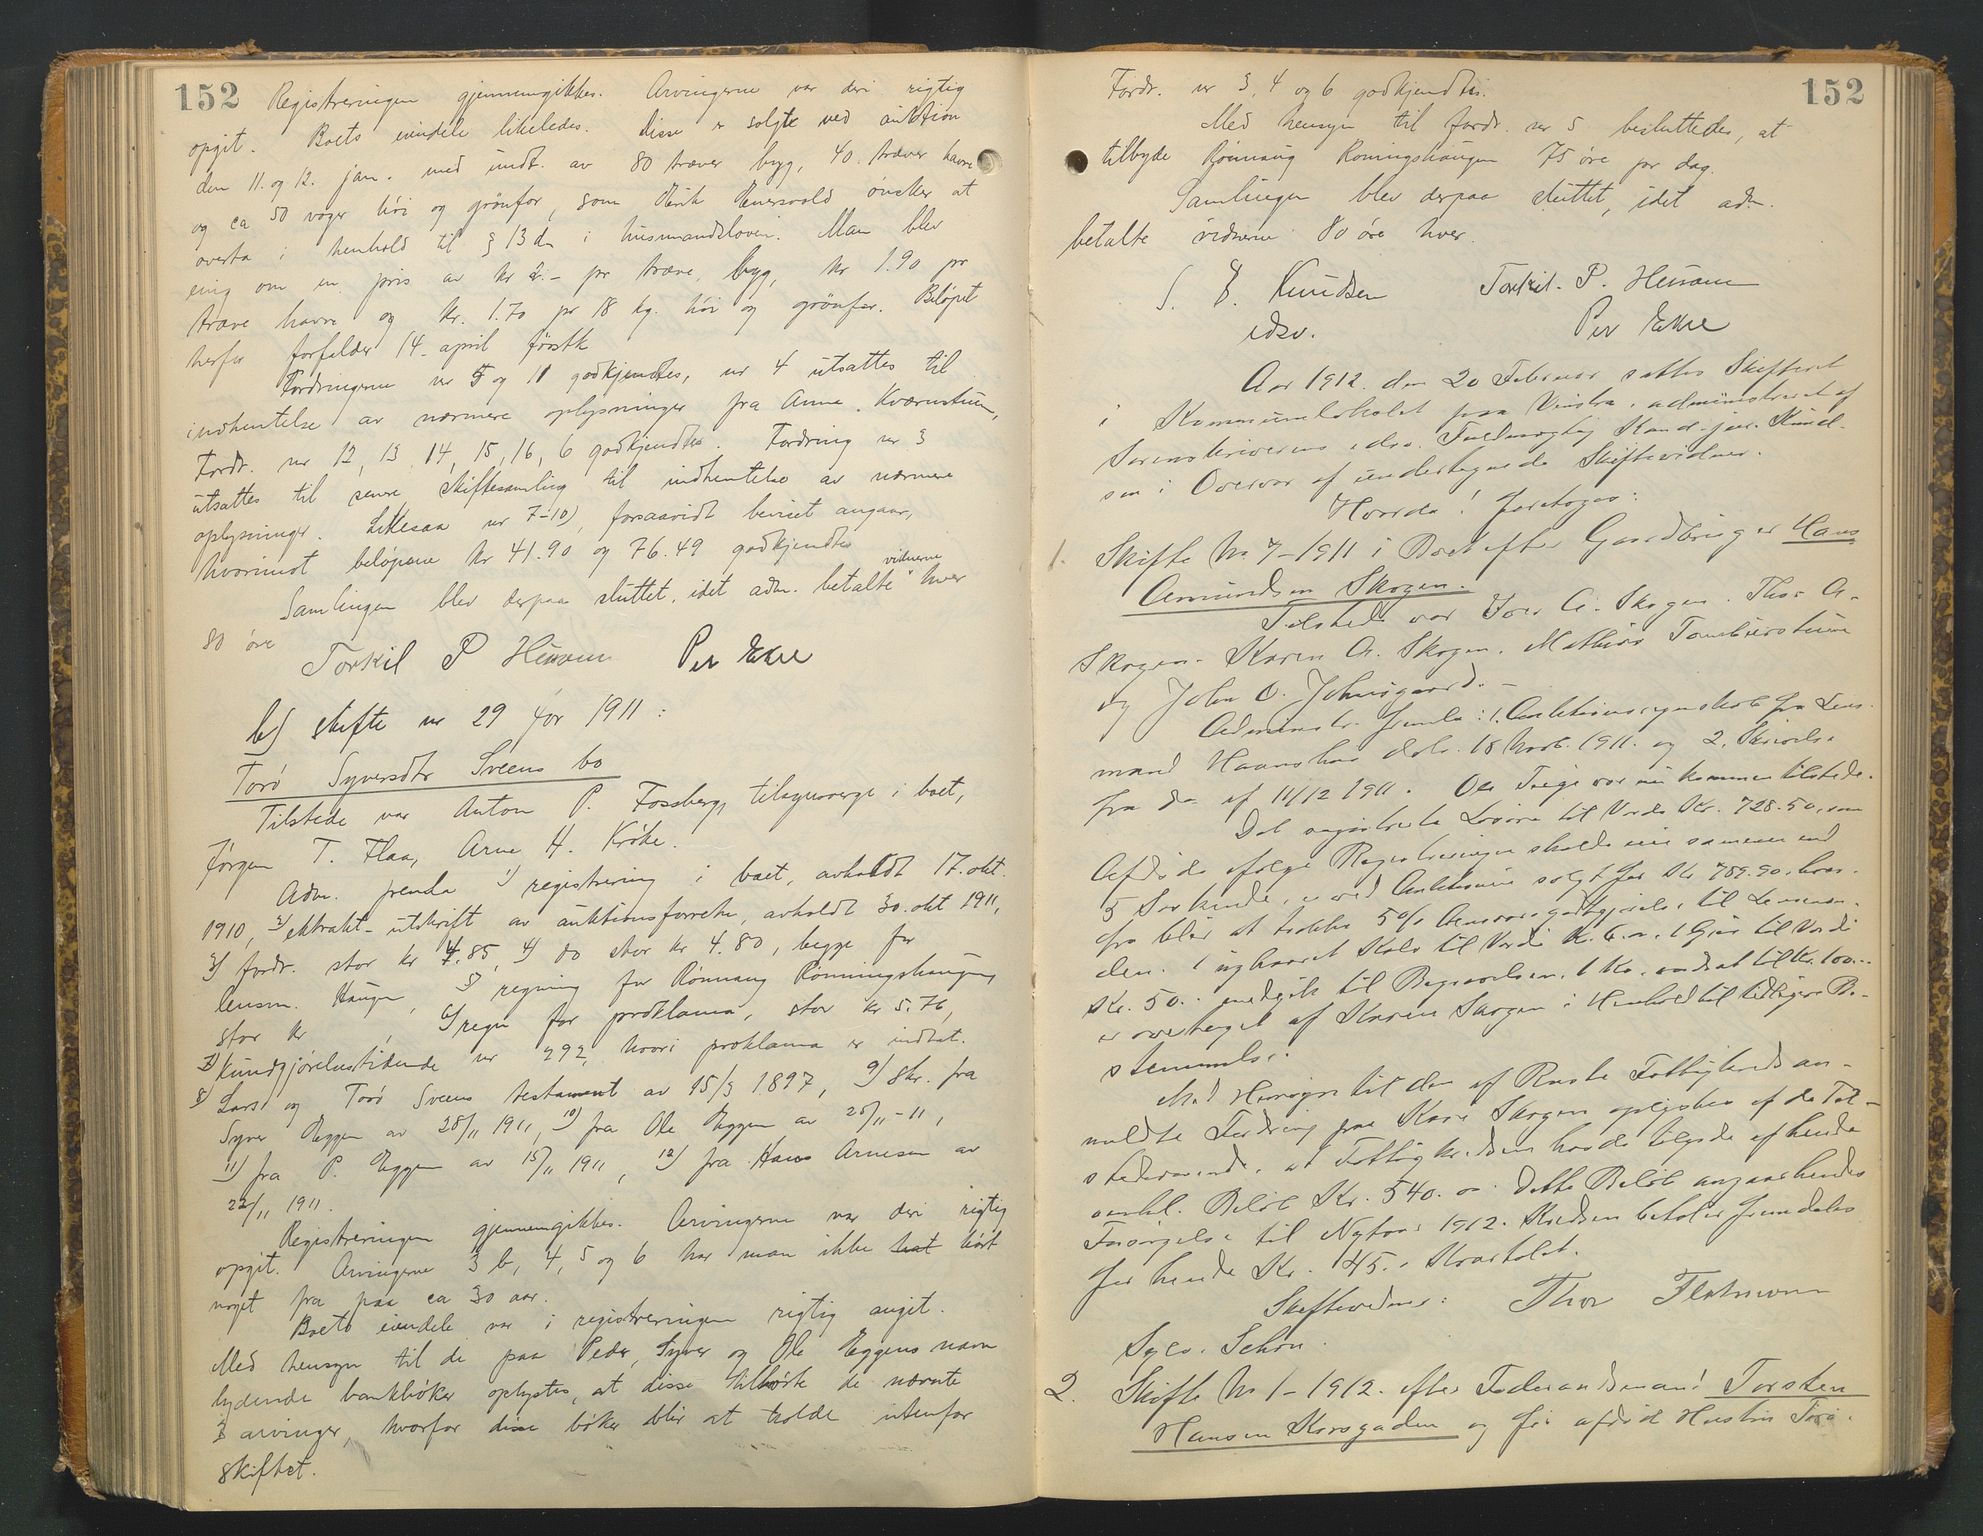 152
Registreringen gjennemgikkes. Arvingerne var deri rigtig
opgit. Boets eiendele likeledes. Disse er solgte ved auktion
den 11. og 12. jan. med undt. av 80 træver byg, 40 træver havre
og ca 50 voger höi og grönfor, som Erik ønsker at
overta i henhold til § 13 i husmandsloven. Man blev
enig om en pris av kr 2.- pr træve byg, kr 1.90 pr
træve havre og kr. 1.70 pr 18 kg. höi og grönfor. Beløpet
herfor forfalder 14. april førstk.
Fordringerne nr 5 og 11 godkjendtes, nr 4 utsattes til
indhentelse av nærmere oplysninger fra Anne Kværnstuen,
Fordr. nr 12, 13, 14, 15, 16, 6 godkjendtes. Fordring nr 3
utsattes til senere skiftesamling til indhentelse av nærmere
oplysninger. Likesaa nr 7-10), forsaavidt beviset angaar,
hvorimot beløpene kr 41.90 og 76.49 godkjendtes
Samlingen blev derpaa sluttet, idet adm. betalte vidnerne hver
80 øre
Torkil P Per Ekre
b) skifte nr 29 for 1911:
Torø Syversdtr Sveens bo
Tilstede var Anton P. Fossberg, tilsynsverge i boet,
Jørgen T. Flaa, Arne H. Krøke.
Adm. fremla 1) registrering i boet, avholdt 17. okt.
1910, 2) ekstrakt-utskrift av auktionsforretn, avholdt 30. okt 1911,
3) fordr. stor kr 4.85, 4) do stor kr 4.80, begge for
lensm. Haugen, 5) regning for Rønnaug Rønningshaugen,
stor kr , 6) regn for proklama, stor kr 5.76,
7) Kundgjørelsestidende nr 292, hvori proklama er indtat.
8) Lars og Torø Sveens testament av 15/3 1897, 9) skr. fra
Syver Eggen av 28/11 1911, 10) fra Ole Eggen av 25/11-11,
11) fra P. Eggen av 15/11 1911, 12) fra Hans Arnesen av
22/11 1911.
Registreringen gjennemgikkes. Arvingerne var deri rigtig
opgit. Arvingerne 3 b, 4, 5 og 6 har man ikke hørt
noget fra paa ca 30 aar.
Boets eiendele var i registreringen rigtig angit.
Med hensyn til de paa Peder, Syver og Ole Eggens navn
lydende bankbøker oplystes, at disse tilhørte de nævnte
3 arvinger, hvorfor disse bøker blir at holde utenfor
skiftet.
152
Fordr. nr 3, 4 og 6 godkjendtes.
Med hensyn til fordr. nr 5 besluttedes, at
tilbyde Rønnaug Rønningshaugen 75 øre pr dag.
Samlingen blev derpaa sluttet, idet adm.
betalte vidnerne 80 øre hver.
S. E. Knudsen Torkil. P.
edsv. Per Ekre
Aar 1912 den 20 Februar sattes Skifteret
i Kommunelokalet paa Vinstra, administreret af
Sorenskriverens edsv. Fuldmægtig Kand. jur. Knud-
sen i Overvær af undertegnede Skiftevidner.
Hvorda! foretoges:
1. Skifte No 7-1911 i Boet efter Gaardbruger Hans
Amundsen Skogen.
Tilstede var Iver A. Skogen. Thor A.
Skogen. Karen A. Skogen. Mathias
og John O. Johnsgaard.-
Administr. fremla: 1. Auktionsregnskab fra Lens-
mand Haanshus dat. 18 Novb. 1911. og 2. Skrivelse
fra do af 11/12 1911. Ole var nu kommen tilstede.
Det registrerte Løsøre til Værdi Kr. 728.50, som
Afdøde ifølge Registreringen skulde eie sammen med
5 Søskende, er ved Auktionen solgt for Kr 789.90, hvor-
fra blir at trække 5% Ansvarsgodtgjørelse til Lensman-
den. 1 Kalv til Værdi Kr. 6.00, 1 Gris til Værdi
Kr. 50.- medgik til Begravelsen. 1 Ko, vurderet til Kr. 100.-
er overtaget af Karen Skogen i Henhold til tidligere Be-
stemmelse.
Med Hensyn til den af Fattigkreds an-
meldte Fordring paa Kari Skogen oplystes af de Til-
stedeværende, at Fattigkredsen havde tilgode af hende
Beløb Kr. 540.00. Dette Beløb angaar hendes
Forsørgelse til Nytaar 1912. Kredsen betaler fremdeles
for hende Kr. 45.- Kvartalet.
Skiftevidner: Thor
Syv. Schøn.
2. Skifte No 1-1912 efter Føderaadsmand Torsten
Hansen Korsgaden og før afdøde Hustru Torø.